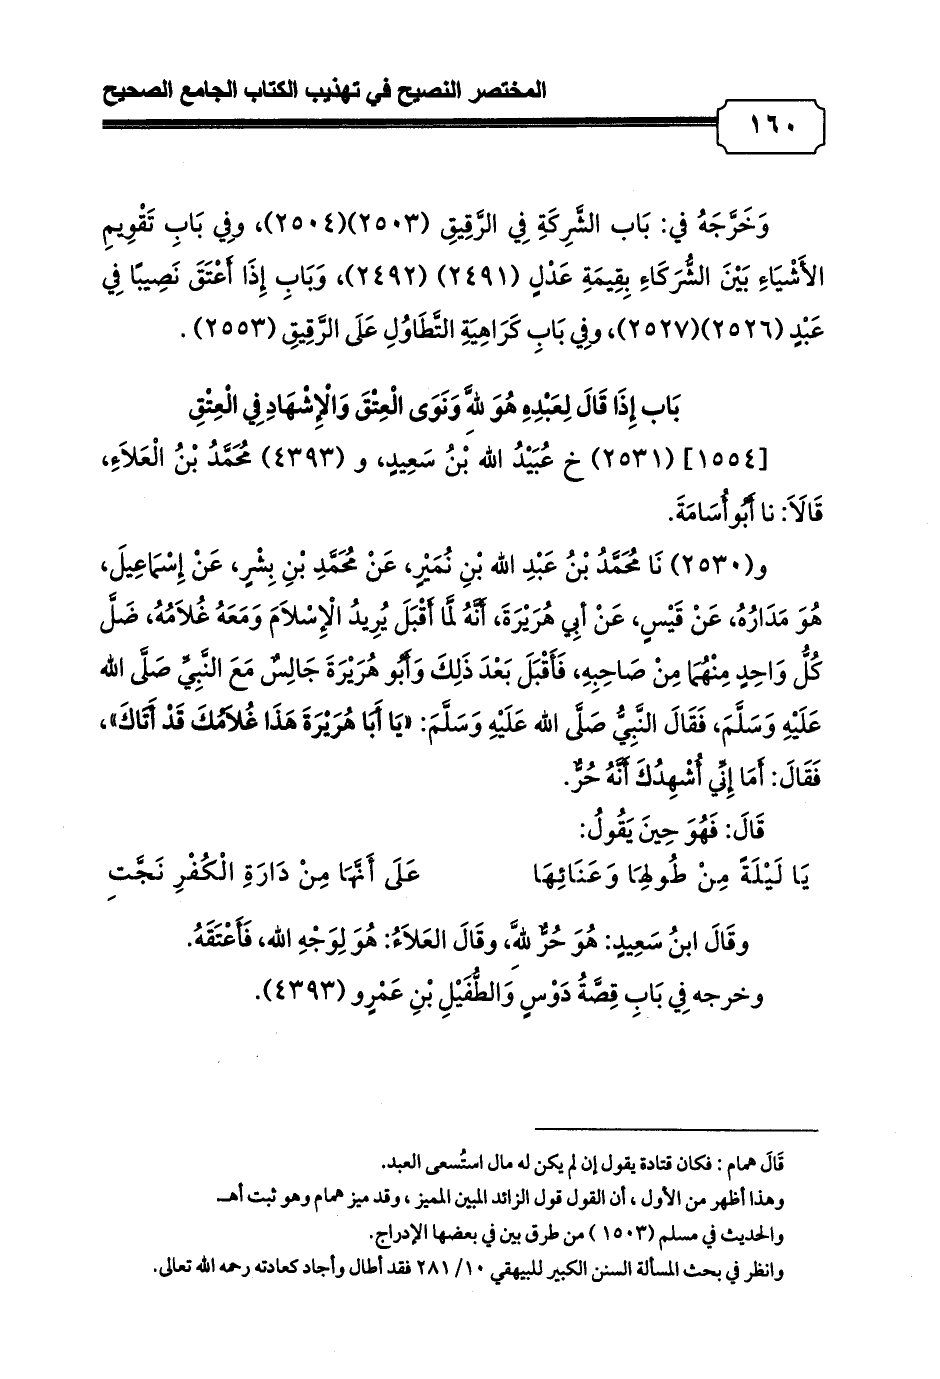 المختصر النصيح في تهذيب الكتاب الجامع الصحيح
١٦٠
وَخَرَّجَهُ فِي: بَاب الشَّرِكَةِ فِي الرَّقِيقِ (٢٥٠٣)(٢٥٠٤)، وفِي بَابِ تَقْوِيمِ
الأَشْيَاءِ بَيْنَ الشُّرَكَاءِ بِقِيمَةِ عَدْلٍ (٢٤٩١) (٢٤٩٢)، وَبَابِ إِذَا أَعْتَقَ نَصِيبًا فِي
عَبْدٍ (٢٥٢٦)(٢٥٢٧)، وفِي بَابِ كَرَاهِيَةِ التَّطَاوُلِ عَلَى الرَّقِيقِ (٢٥٥٣) .
بَاب إِذَا قَالَ لِعَبْدِهِ هُوَ لله وَنَوَى الْعِتْقَ وَالْإِشْهَادِ فِي الْعِتْقِ
[١٥٥٤] (٢٥٣١) خ عُبَيْدُ الله بْنُ سَعِيدٍ، و (٤٣٩٣) مُحَمَّدُ بْنُ الْعَلاَءِ،
قَالاَ: نا أَبُو أُسَامَةَ.
و(٢٥٣٠) نَا مُحَمَّدُ بْنُ عَبْدِ الله بْنِ نُمَيْرٍ، عَنْ مُحَمَّدِ بْنِ بِشْرٍ، عَنْ إِسْمَاعِيلَ،
هُوَ مَدَارُهُ، عَنْ قَيْسٍ، عَنْ أَبِي هُرَيْرَةَ، أَنَّهُ لَمَّا أَقْبَلَ يُرِيدُ الْإِسْلاَمَ وَمَعَهُ غُلاَمُهُ، ضَلَّ
كُلُّ وَاحِدٍ مِنْهُمَا مِنْ صَاحِبِهِ، فَأَقْبَلَ بَعْدَ ذَلِكَ وَأَبُو هُرَيْرَةَ جَالِسٌ مَعَ النَّبِيِّ صَلَّى الله
عَلَيْهِ وَسَلَّمَ، فَقَالَ النَّبِيُّ صَلَّى الله عَلَيْهِ وَسَلَّمَ: «يَا أَبَا هُرَيْرَةَ هَذَا غُلاَمُكَ قَدْ أَتَاكَ»،
فَقَالَ: أَمَا إِنِّي أُشْهِدُكَ أَنَّهُ حُرٌّ.
قَالَ: فَهُوَ حِينَ يَقُولُ:
يَا لَيْلَةً مِنْ طُولِهَا وَعَنَائِهَا عَلَى أَنَّهَا مِنْ دَارَةِ الْكُفْرِ نَجَّتِ
وقَالَ ابنُ سَعِيدٍ: هُوَ حُرٌّ لله، وقَالَ العَلاَءُ: هُوَ لِوَجْهِ الله، فَأَعْتَقَهُ.
وخرجه فِي بَابِ قِصَّةُ دَوْسٍ وَالطُّفَيْلِ بْنِ عَمْرٍو (٤٣٩٣).
قَالَ همام : فكان قتادة يقول إن لم يكن له مال استُسعى العبد.
وهذا أظهر من الأول ، أن القول قول الزائد المبين المميز ، وقد ميز همام وهو ثبت أهـ
والحديث في مسلم (١٥٠٣) من طرق بين في بعضها الإدراج.
وانظر في بحث المسألة السنن الكبير للبيهقي ١٠/ ٢٨١ فقد أطال وأجاد كعادته رحمه الله تعالى.